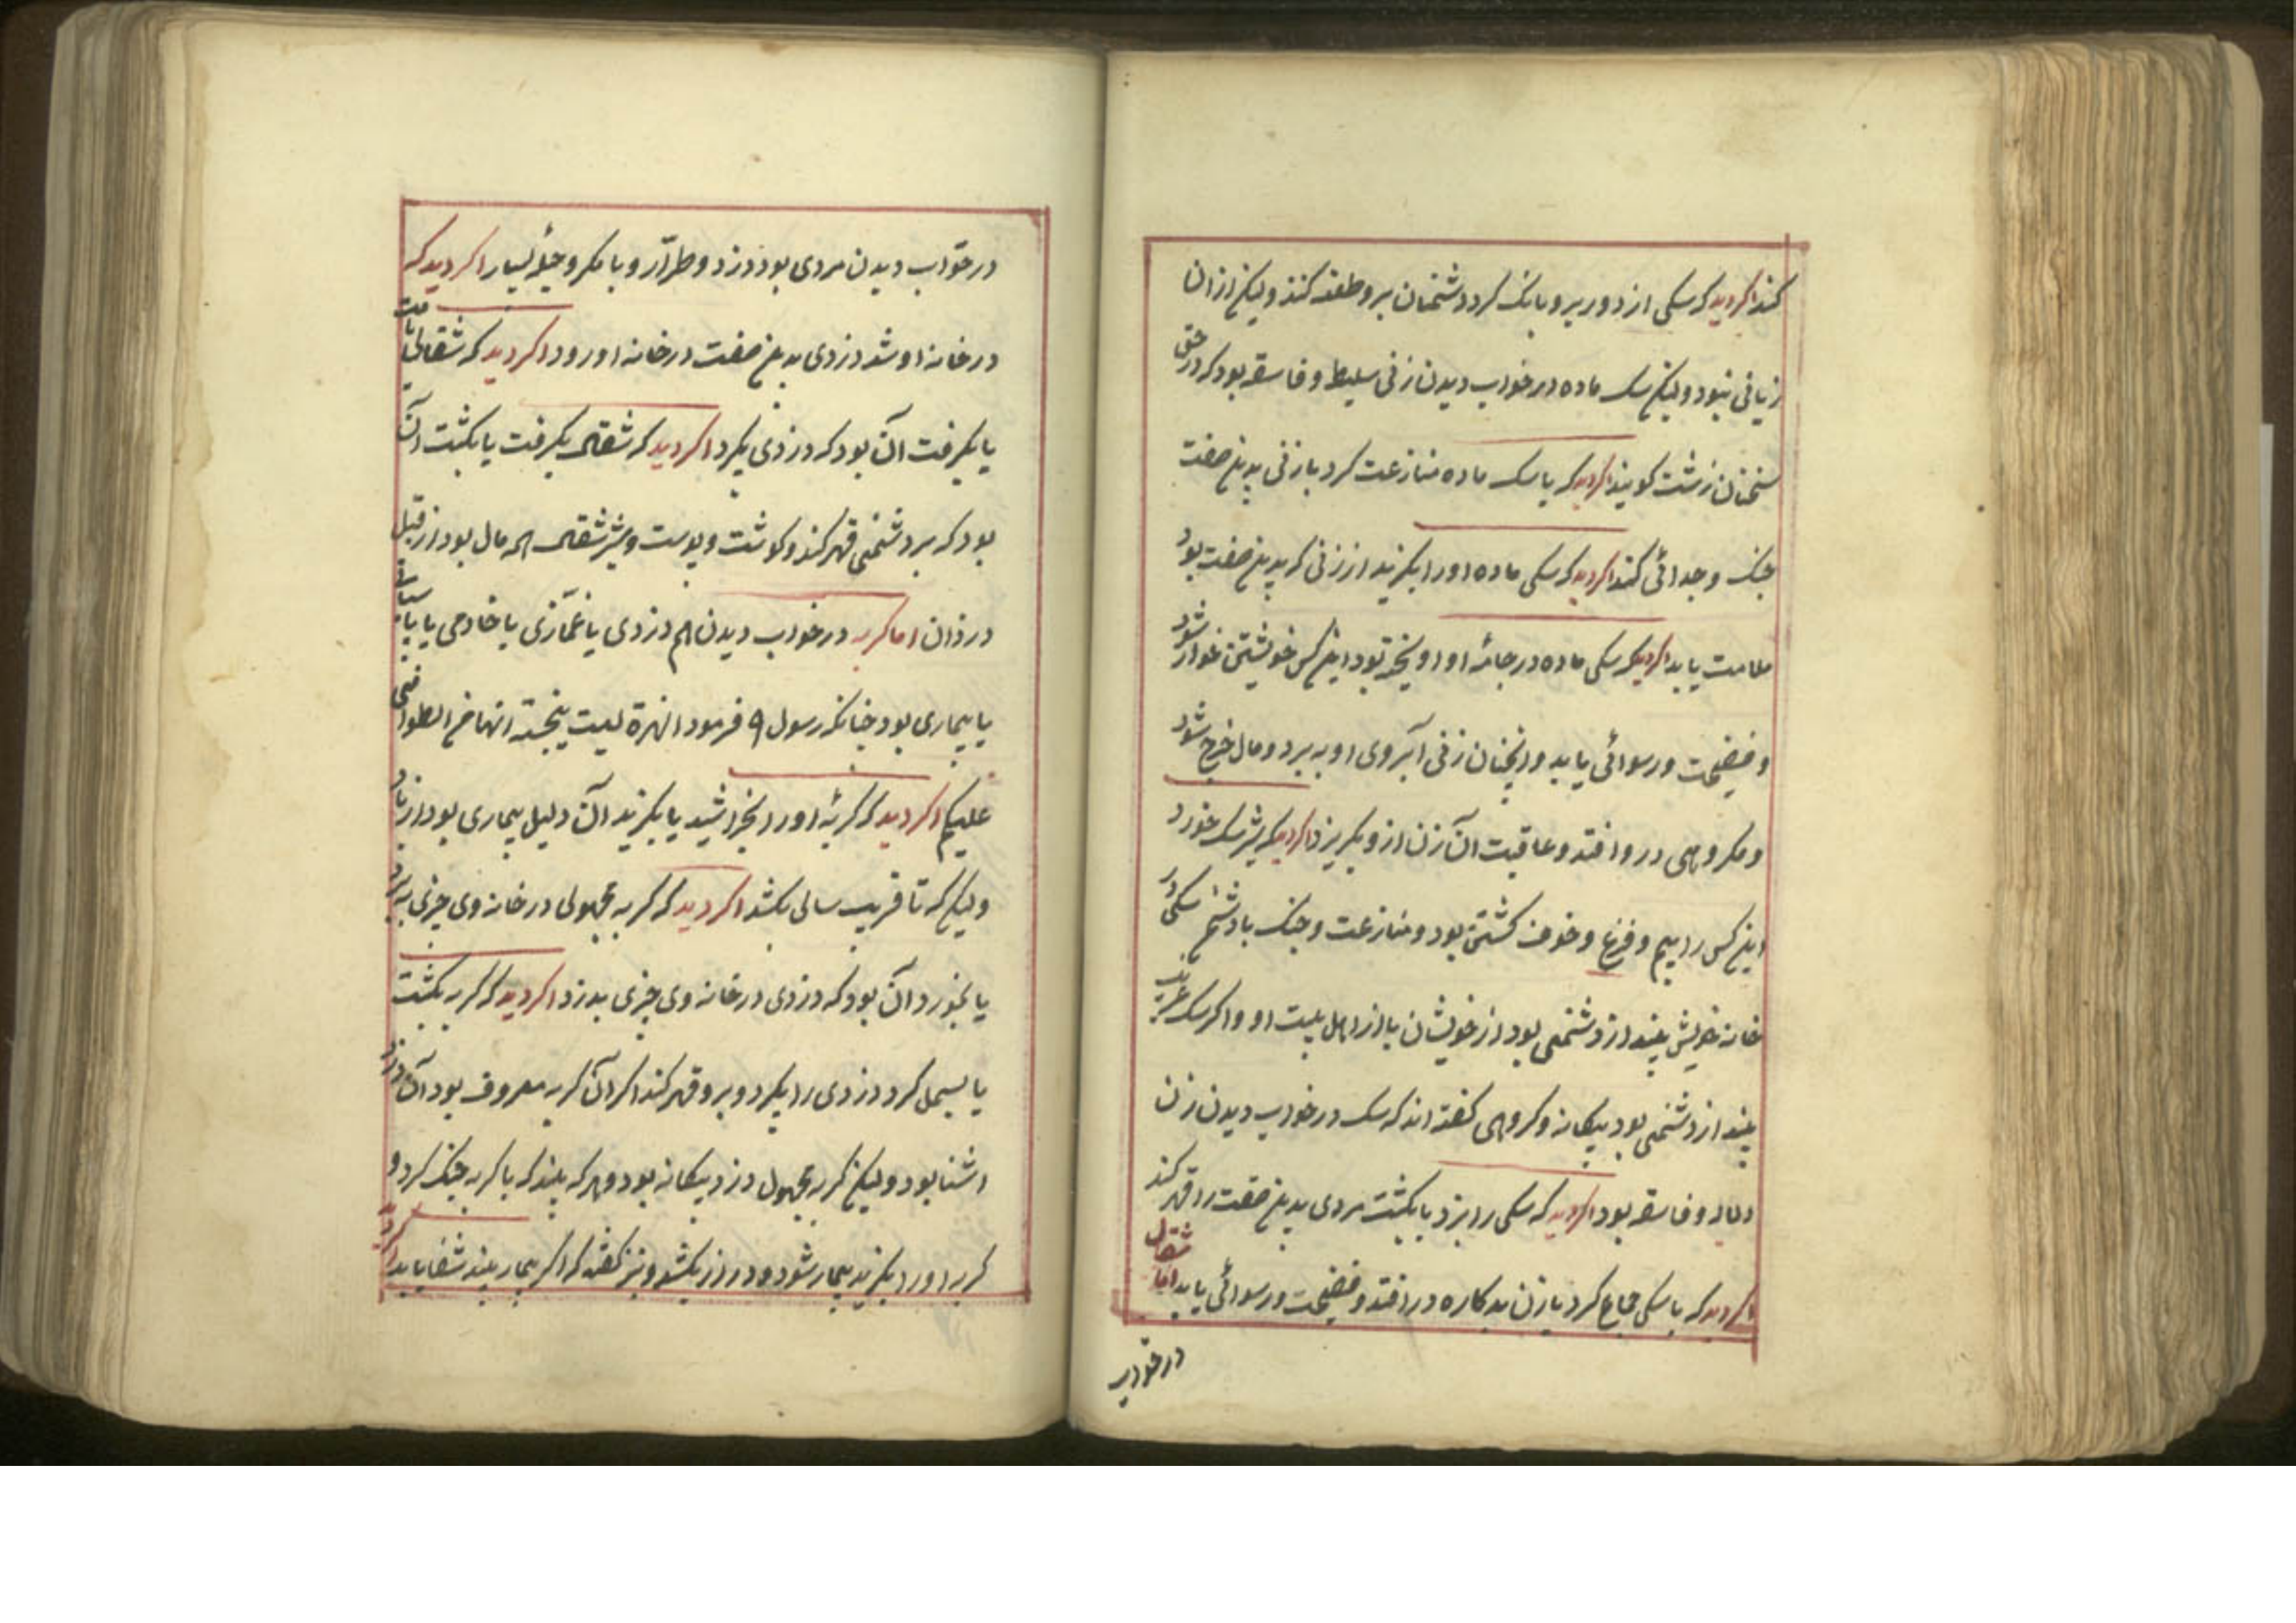 کند اکر دید که سکی از دور برو بانک کرد دشمنان برو طعنه کنند ولیکن از ان
زیانی نبود ولیکن سک ماده در خواب دیدن زنی سلیط و فاسقه بود که در حق
سخنان زشت کویند اکر دید که با سک ماده منازعت کرد با زنی بدین صفت
جنک و جدائی کند اکر دید که سکی ماده او را بکزید از زنی که بدین صفت بود
ملامت یابد اکر دید که سکی ماده در جامهٔ او اویخته بود این کس خویشتن خوار شود
و فضیحت و رسوائی یابد وانچنان زنی آبروی او به برد و مال خرج شود
و مکروهی در وافتد و عاقبت آن زن ازو بکریزد اکر دید که شیر سک خورد
این کس را بیم و فزع و خوف کشتن بود و منازعت و جنک با دشمن سکی در
خانه خویش بیند از دشمنی بود از خویشان یا از اهل بیت او و اکر سک غریب
بیند از دشمنی بود بیکانه و کروهی کفته اند که سک در خواب دیدن زن
دلاله و فاسقه بود اکر دید که سکی را بزد یا بکشت مردی بدین صفت را قهر کند
اکر دید که با سکی جماع کرد با زن بدکاره در افتد و فضیحت و رسوائی یابد اما شقال
در خواب
در خواب دیدن مردی بود دزد و طرّار و با مکر و حیلهٔ بسیار اکر دید که
در خانه او شد دزدی بدین صفت در خانه او رود اکر دید که شقالی یافت
یا بکرفت آن بود که دزدی بکیرد اکر دید که شقالی بکرفت یا بکشت آن
بود که بر دشمنی قهر کند و کوشت و پوست و شیر شقال همه مال بود از قبل
دزدان اما کربه در خواب دیدن هم دزدی یا غمّازی یا خادمی یا پاسبانی
یا بیماری بود چنانکه رسول فرمود الهرة لیست بنجسة انها من الطوافین
علیکم اکر دید که کربهٔ او را بخراشید یا بکزید آن دلیل بیماری بود از
ولیکن که تا قریب سالی بکشد اکر دید که کربه مجهولی در خانه وی چیزی ببرد
یا بخورد آن بود که دزدی در خانه وی چیزی بدزد اکر دید که کربه بکشت
یا بسمل کرد دزدی را بکیرد و برو قهر کند اکر آن کربه معروف بود آن دزد
اشنا بود ولیکن کربه مجهول دزد بیکانه بود و هر که بیند که با کربه جنک کرد و
کربه او را بکزید بیمار شود و درد بکشد و نیز کفته که اکر بیمار بیند شفا یابد اکر دید